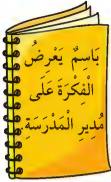 بَاسِمٌ يَعْرِضُ
الْفِكْرَةَ عَلَى
مُدِيرِ الْمَدْرَسَةِ.